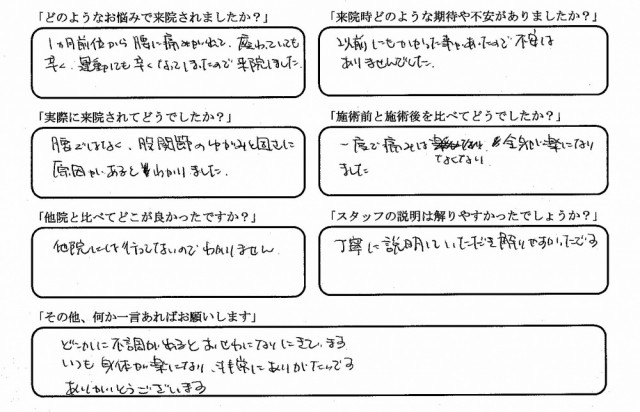 「どのようなお悩みで来院されましたか？」
1カ月前位から腰に痛みがでて、座っていても
辛く、運動にも辛くなってしまったので来院しました。
「来院時どのような期待や不安がありましたか？」
以前にもかかった事があったので不安は
ありませんでした。
「実際に来院されてどうでしたか？」
腰ではなく、股関節のゆがみと固さに
原因があると わかりました。
「施術前と施術後を比べてどうでしたか？」
一度で痛みは なくなり 全身が楽になり
ました
「他院と比べてどこが良かったですか？」
他院には行ってないのでわかりません
「スタッフの説明は解りやすかったでしょうか？」
丁寧に説明していただき解りやすいたです
「その他、何か一言あればお願いします」
どこかに不調があるとおせわになりにきています
いつも身体が楽になり、非常にありがたいです
ありがとうございます